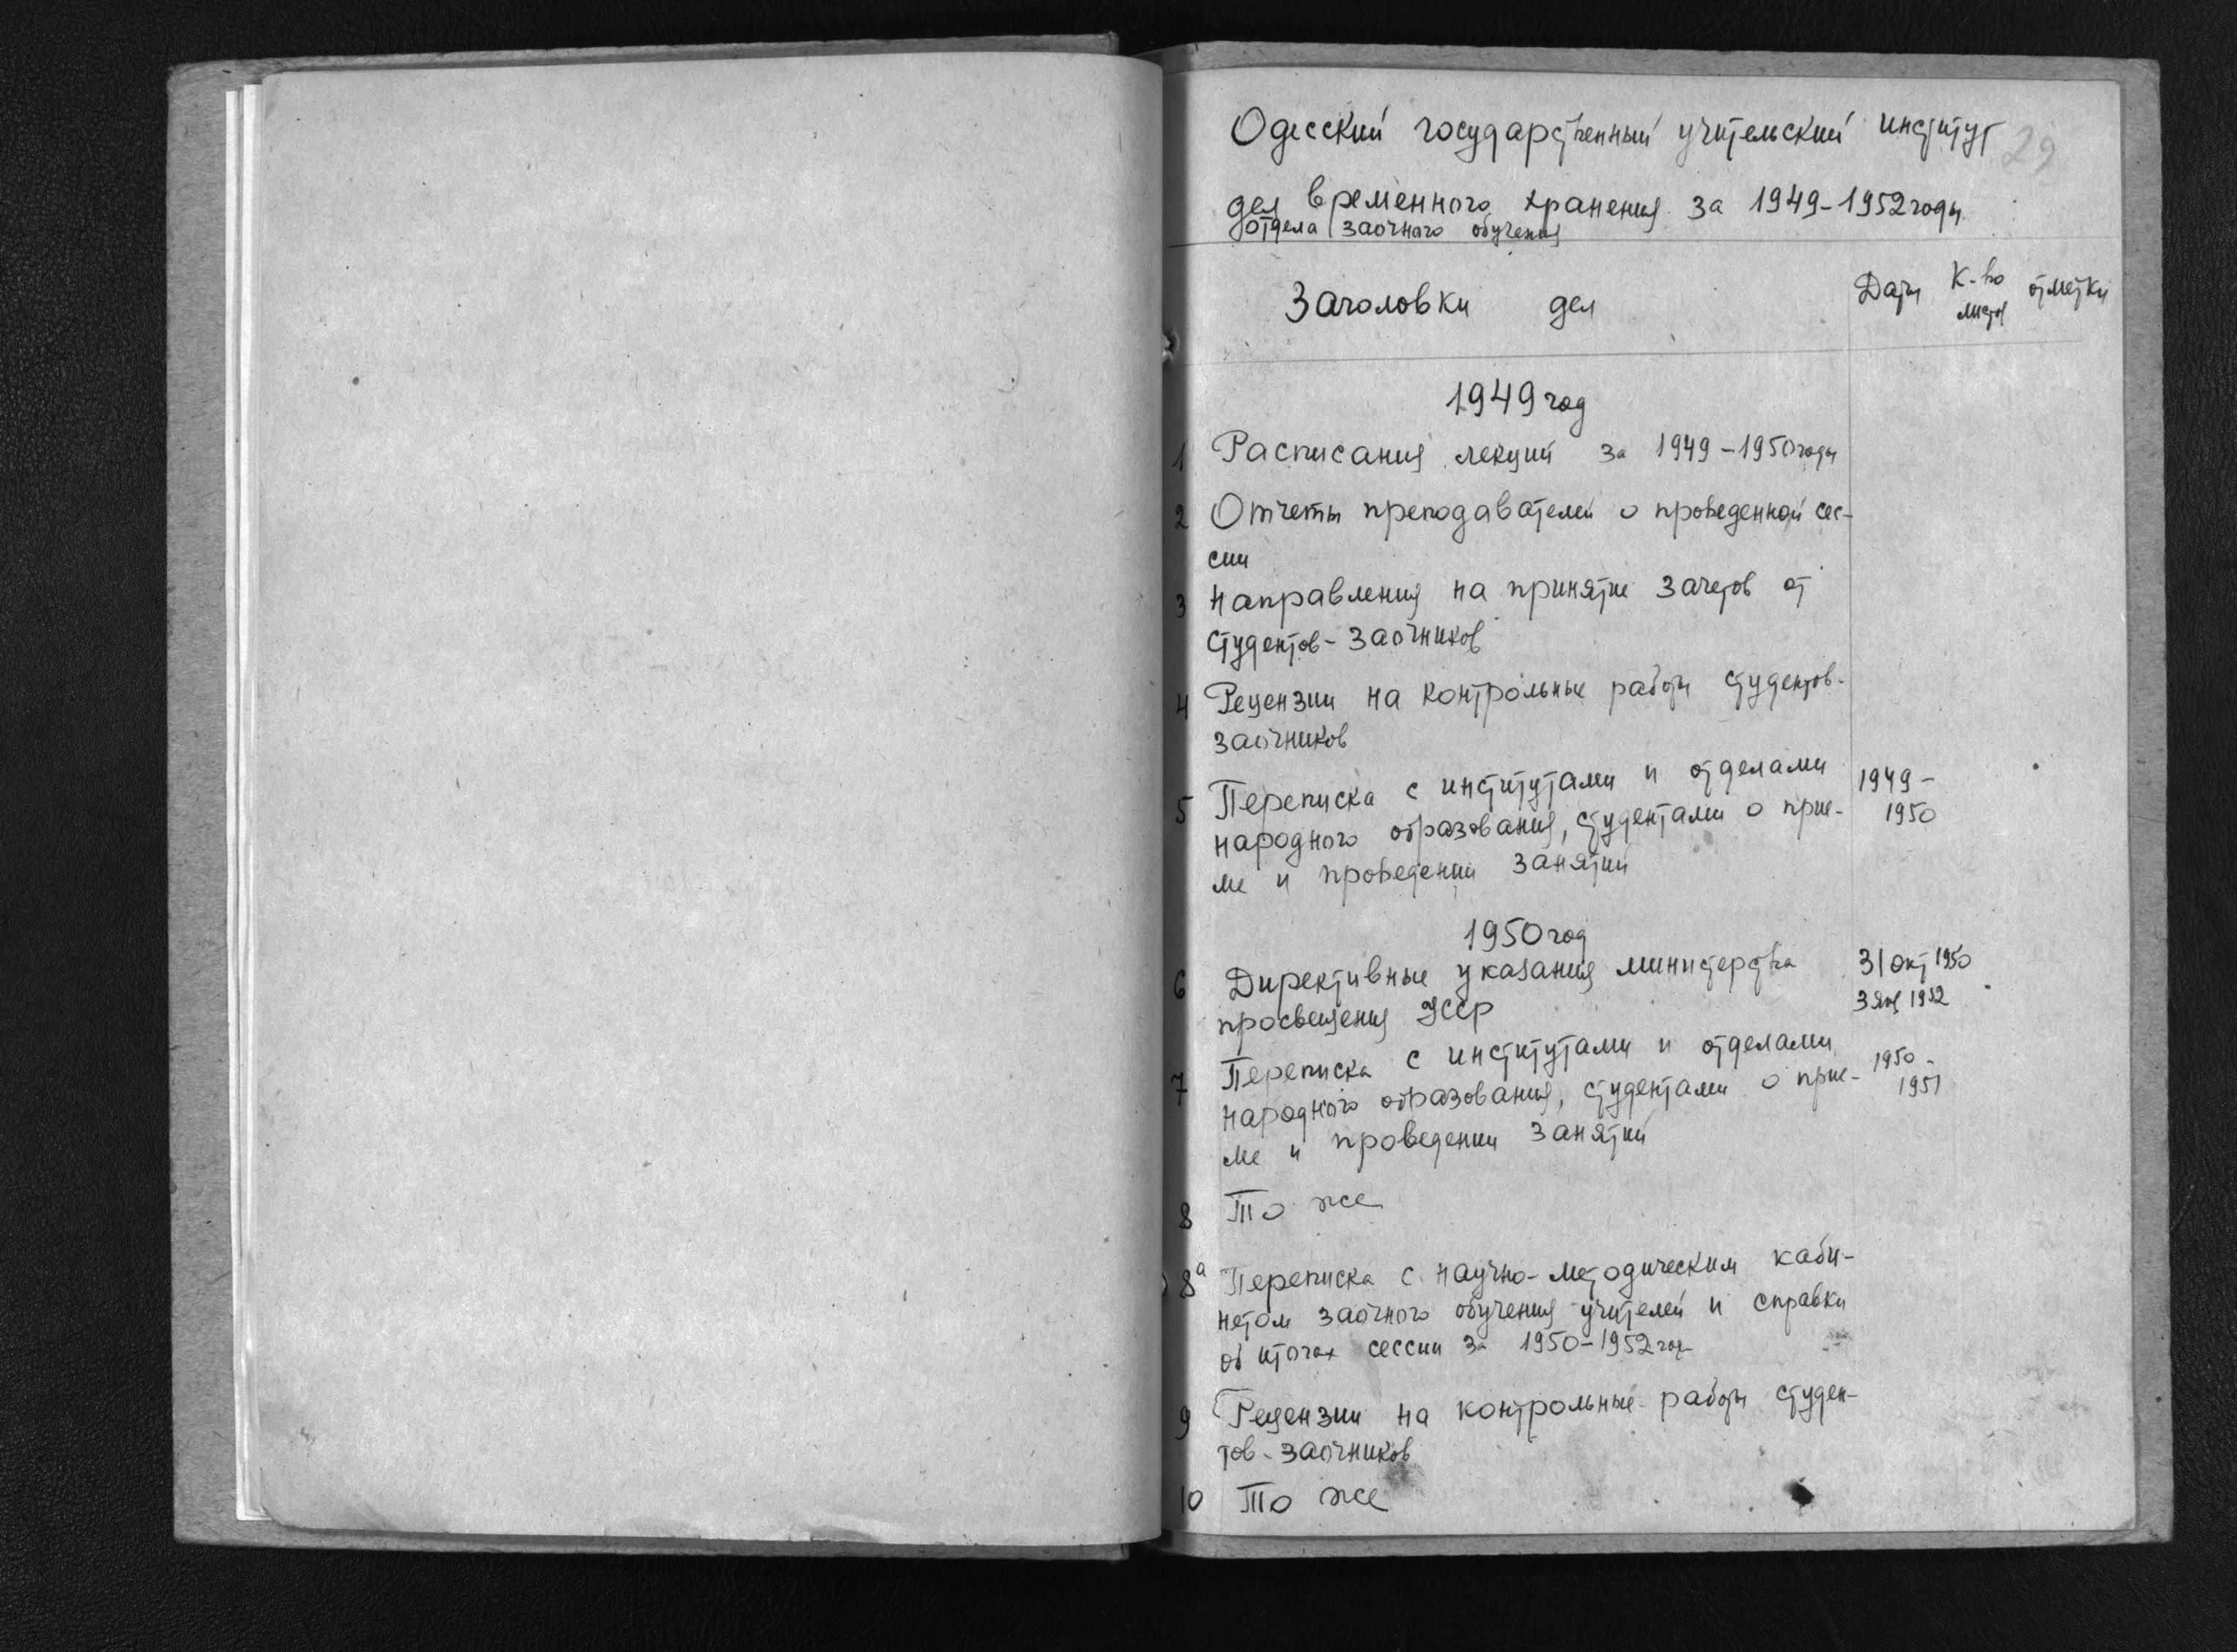 Одесский государственный учительский институт
29
дел временного хранения за 1949-1952 годы
отдела заочного обучения
Заголовки дел
Даты
К-во
листов
отметки
1949 год
1 Расписания лекций за 1949-1950 годы
2 Отчеты преподавателей о проведенной сес-
сии
3 Направления на принятие зачетов от
студентов-заочников
4 Рецензии на контрольные работы студентов-
заочников
5 Переписка с институтами и отделами 1949-
народного образования, студентами о прие- 1950
ме и проведении занятий
1950 год
6 Директивные указания министерства 31 окт 1950
просвещения УССР 3 янв 1952
7 Переписка с институтами и отделами 1950-
народного образования, студентами о прие- 1951
ме и проведении занятий
8 То же
8а Переписка с научно-методическим каби-
нетом заочного обучения учителей и справки
об итогах сессии за 1950-1952 год
9 Рецензии на контрольные работы студен-
тов-заочников
10 То же